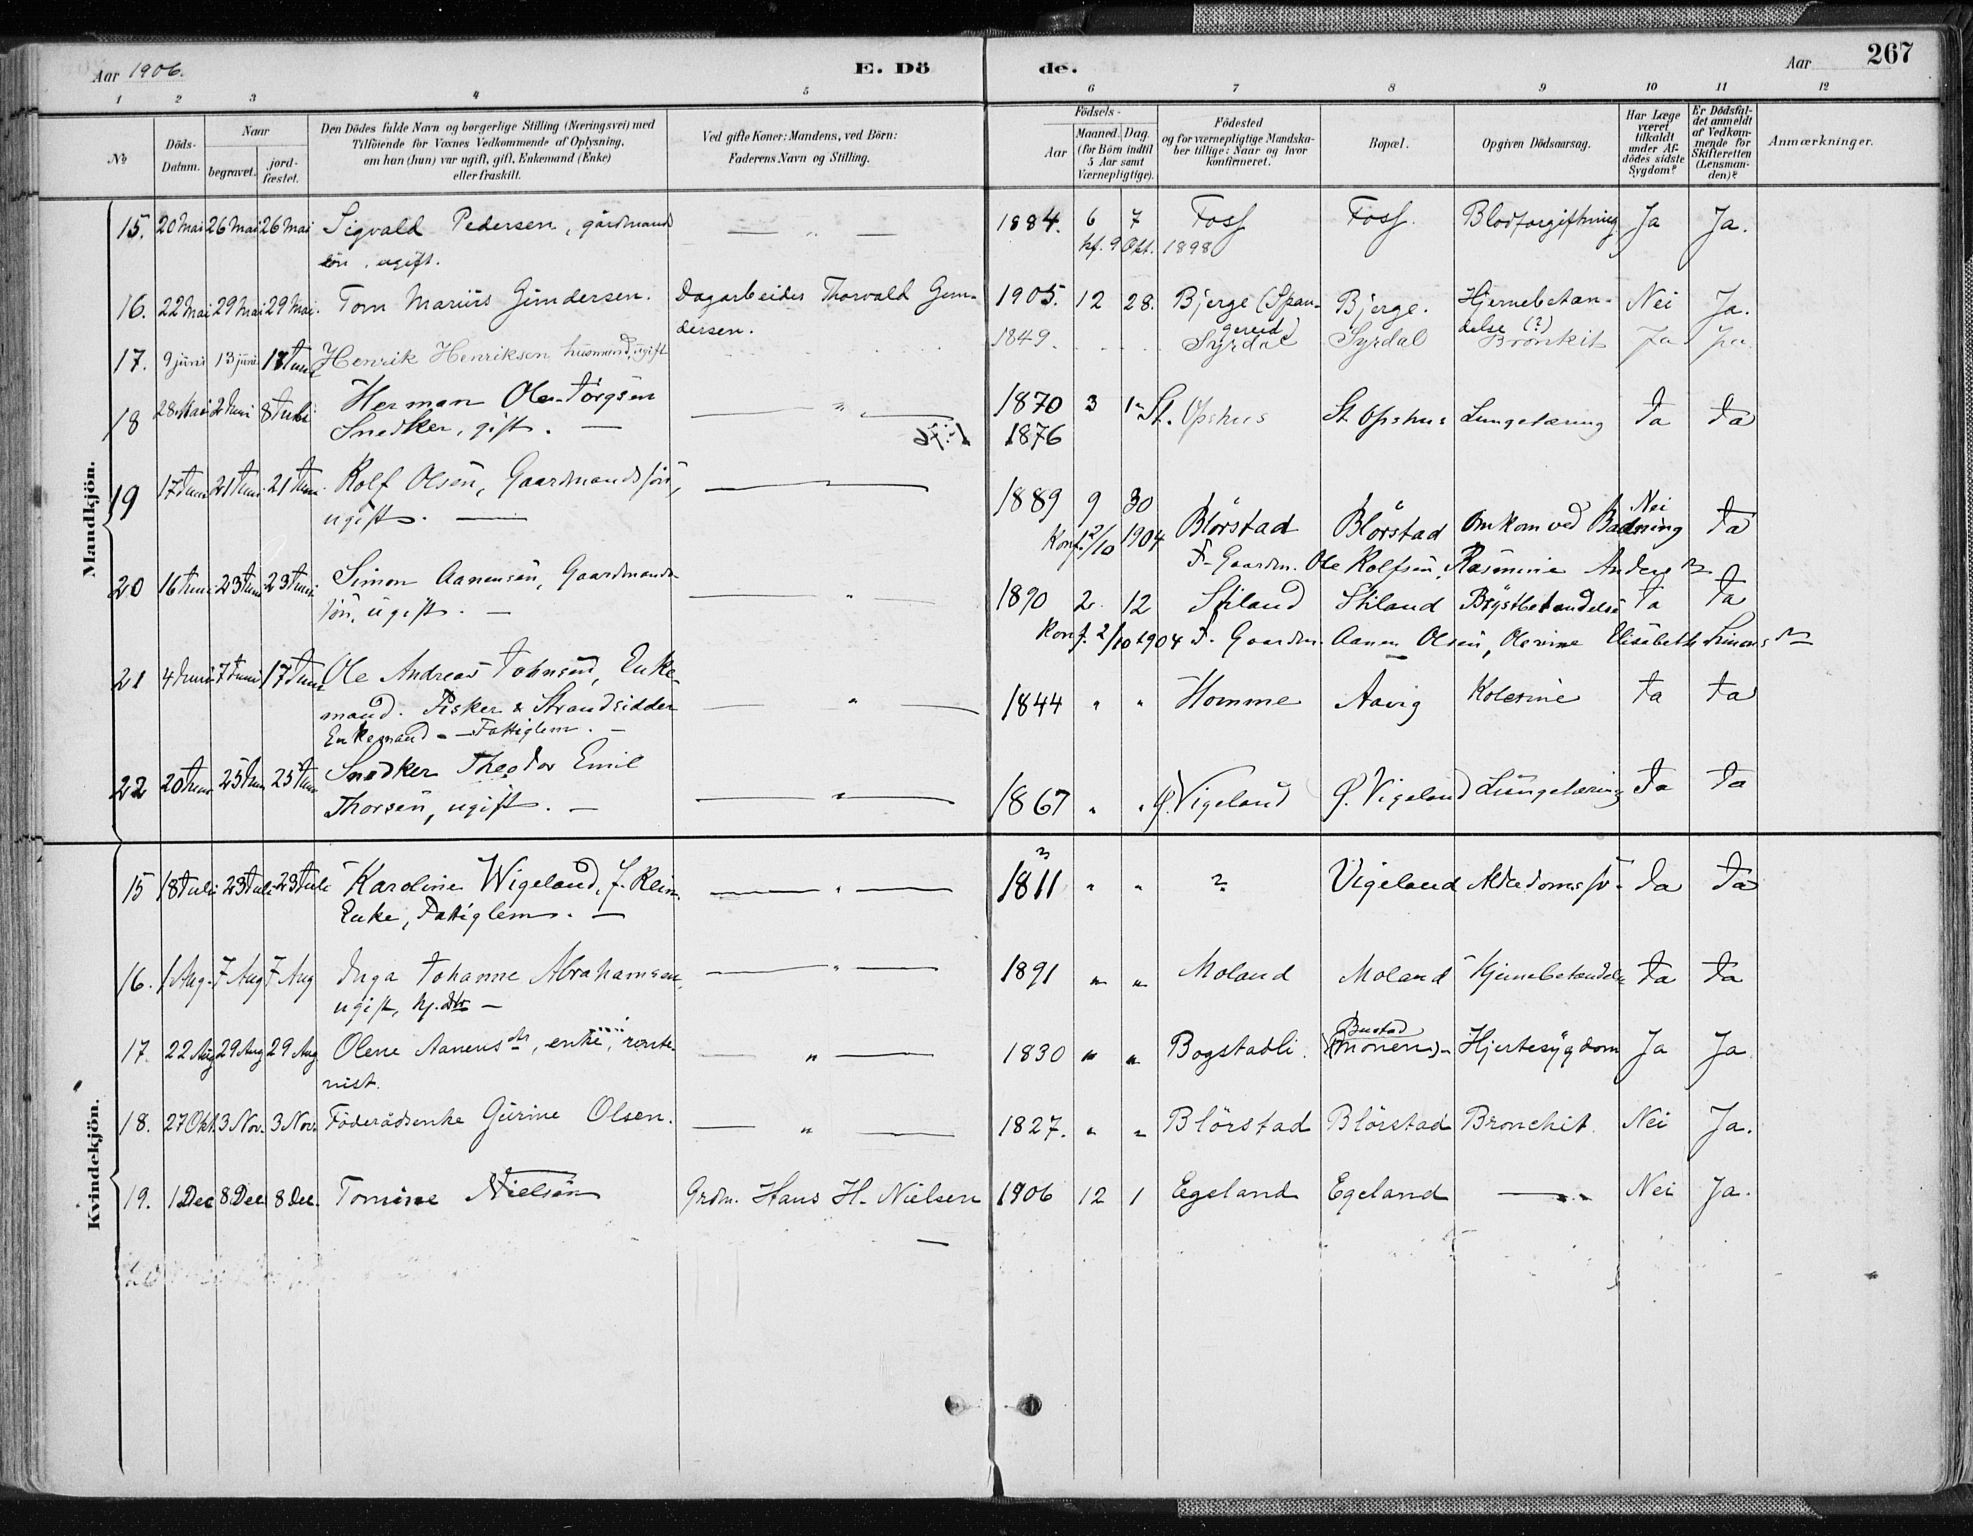 Aar 1906. E. Dö de. Aar 267
1 2 3 4 5 6 7 8 9 10 11 12
No Döds-Datum. Naar begravet. jordfæstet. Den Dödes fulde Navn og borgerlige Stilling (Næringsvei) med Tilföiende for Voxnes Vedkommende af Oplysning, om han (hun) var ugift, gift, Enkemand (Enke) eller fraskilt. Ved gifte Koner: Mandens, ved Börn: Faderens Navn og Stilling. Födsels- Aar Maaned. Dag. (for Börn indtil 5 Aar samt Værnepligtige). Födested og for værnepligtige Mandskaber tillige: Naar og hvor konfirmeret. Bopæl. Opgiven Dödsaarsag. Har Læge været tilkaldt under Afdödes sidste Sygdom? Er Dödsfaldet anmeldt af Vedkommende for Skifteretten (Lensmanden)? Anmærkninger.
Mandkjön.
15. 20 Mai 26 Mai 26 Mai Sigvald Pedersen, gårdmands — " — 1884. 6 7 Foss Foss. Blodforgiftning Ja Ja.
sön, ugift. kf. 9 Okt. 1898
16. 22 Mai 29 Mai 29 Mai. Tom Marius Gundersen. Dagarbeider Thorvald Gun- 1905. 12 28. Bjerge (Span- Bjerge. Hjernebetæn- Nei Ja.
dersen. gereid) delse (?)
17. 9 juni 13 juni 17 Juni Henrik Henriksen, husmand, ugift 1849. Syrdal Syrdal Bronkit Ja Ja
18 28 Mai 2 Juni 8 Juli Herman Ole Jörgsen — " — 1870 3 1 St. Opshus St. Opshus Lungetæring Ja Ja
Snedker, gift. — 1876
19 17 Juni 21 Juni 21 Juni. Rolf Olsen, Gaardmandssön, — 1889 9 30 Blörstad Blörstad Omkom ved Badning Nei Ja
ugift. — Konf. 2/10 1904
F. Gaardm. Ole Rolfsen, Rasmine Anders
20 16 Juni 23 Juni 23 Juni. Simon Aanensen, Gaardmands- — " — 1890 2. 12 Stiland Stiland Brystbetændelse Ja Ja
sön, ugift. — Konf. 2/10 1904 F. Gaardm. Aanen Olsen, Olevine Elisabeth Simons
21 4 Juni 7 Juni 17 Juni Ole Andreas Johnsen, Enke- — " — 1844 " " Homme Aavig Kolerine Ja Ja
mand. Fisker & Strandsidder
Enkemand - Fattiglem. —
22 20 Juni 25 Juni 25 Juni Snedker Theodor Emil — " — 1867 " " Ø. Vigeland Ø. Vigeland Lungetæring Ja Ja
Thorsen, ugift. —
Kvindekjön.
15 18 Juli 23 Juli 23 Juli Karoline Wigeland, f. Reim — " — 1811 ? " " ? Vigeland Alderdomssv. Ja Ja
Enke, Fattiglem. —
16. 1 Aug. 7 Aug 7 Aug Inga Johanne Abrahamsen, — " — 1891 " " Moland Moland Hjernebetændelse Ja Ja
ugift, hj. dtr —
17. 22 Aug 29 Aug 29 Aug Olene Aanensdtr, enke, rente- — " — 1830 " " Bogstadli. Bustad (Monen) Hjertesygdom Ja Ja
nist.
18. 27 Okt. 3 Nov. 3 Nov. Föderådsenke Gurine Olsen. — " — 1827. " " Blörstad Blörstad Bronchit. Nei Ja.
19. 1 Dec 8 Dec 8 Dec. Tomine Nielsen Grdm. Hans H. Nielsen 1906 12 1 Egeland Egeland — Nei Ja.